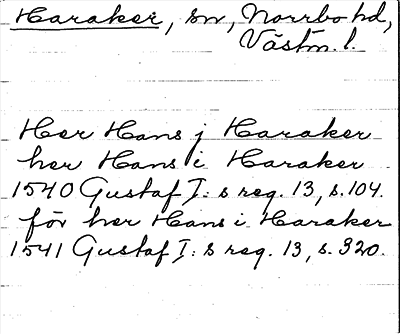 Haraker, sn, Norrbo hd,
Västm. l.
Her Hans j Haraker
her Hans i Haraker
1540 Gustaf I:s reg. 13, s. 104.
för her Hans i Haraker
1541 Gustaf I:s reg. 13, s. 320.